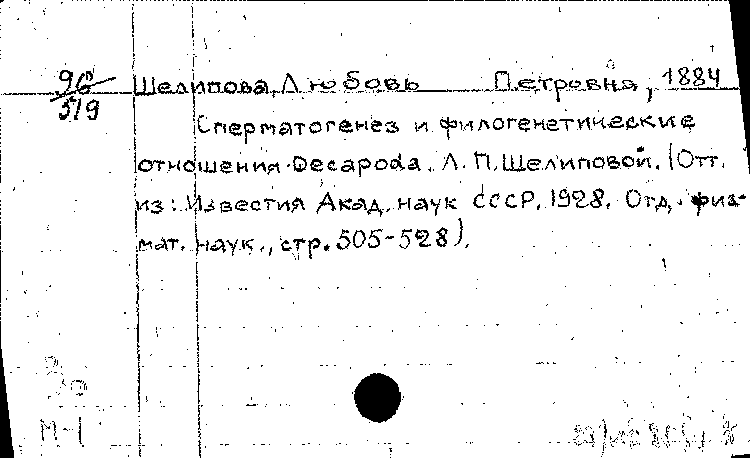 96/519 Шелипова, Любовь Петровна, 1884
Сперматогенез и филогенетические
отношения Decapoda. Л. П. Шелиповой. (Отт.
из: Известия Акад. наук СССР. 1928. Отд. физ-
мат. наук., стр. 505-528).
М-1